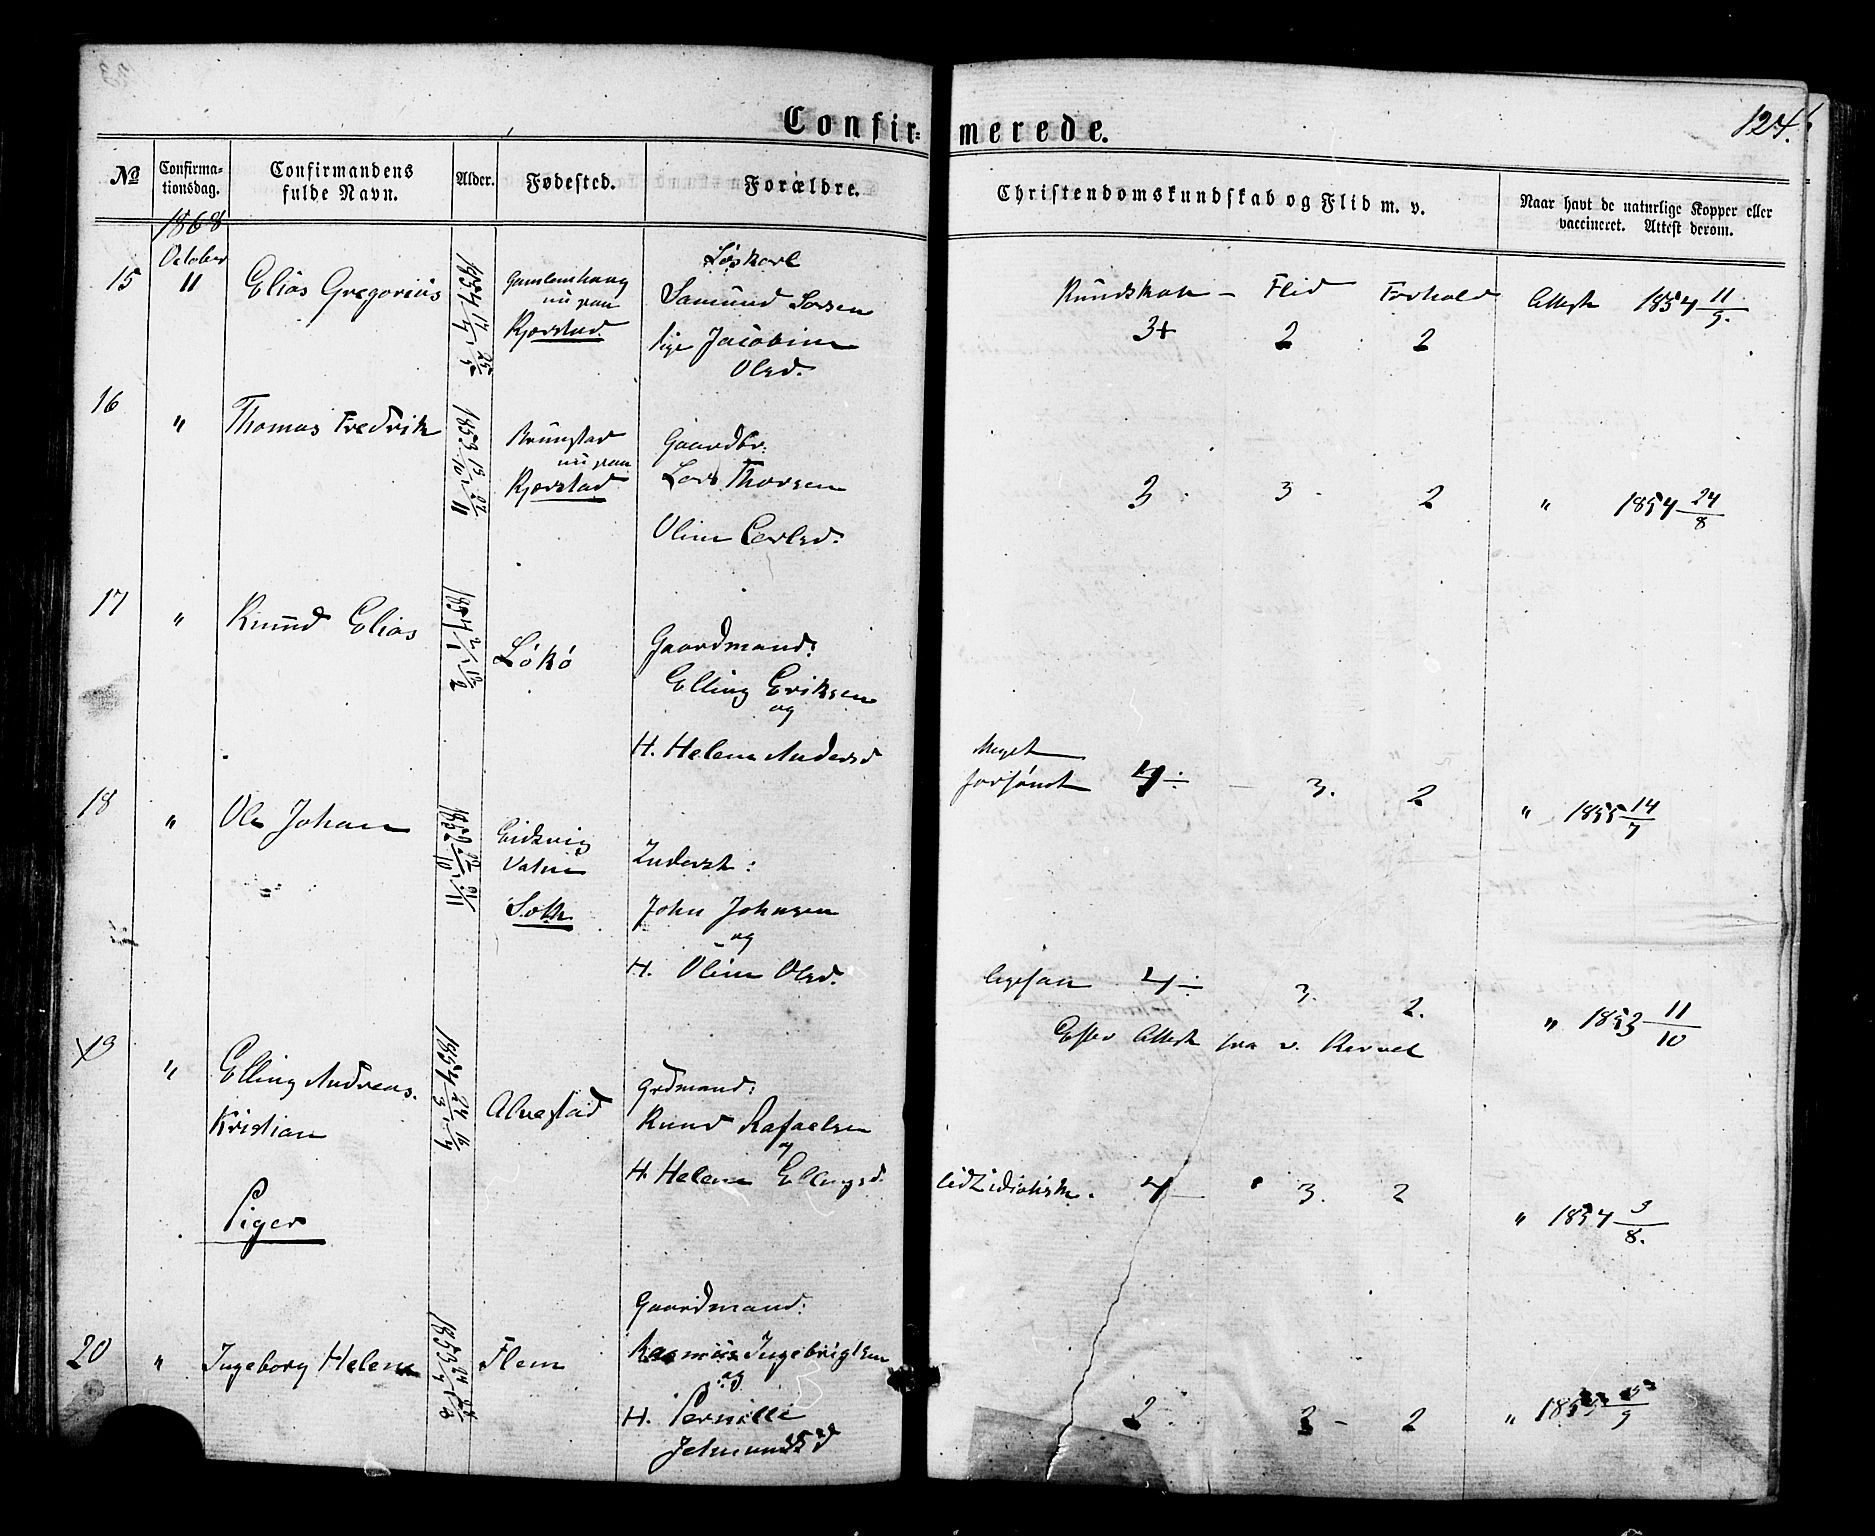 Confir-merede.
124.
No
Confirma-tionsdag.
Confirmandens fulde Navn.
Alder.
Fødested.
Forældre.
Christendomskundskab og Flid m. v.
Naar havt de naturlige Kopper eller vaccineret. Attest derom.
1868
October
15 11 Elias Gregorius 1854
nu paa
Kjærstad
Løskarl
Samund
Pige Jacobine
Olsd.
Kundskab – Flid Forhold
3+ 2 2
Attest 1854 11/9.
16 " Thomas Fredrik 1853
Brunstad
nu paa
Kjærstad
Gaardbr.
Lars Thorsen
Oline
3 3 2
" 1854 24/8
17 " Knud Elias 1854
Løkø
Gaardmand:
Elling Eriksen
og
H. Helene Andersd
Meget
forsømt 4÷ – 3. 2
" 1855 14/7
18 " Ole Johan
Eidsvig
Vatne
Inderst:
John Johnsen
og
H. Oline Olsd.
ligesaa 4÷ 3. 2.
" 1853 11/10
Efter Attest fra
19 " Elling Andreas
Kristian 1854 24/3
Alvestad
Grdmand:
Knud Rafaelsen
og
H. Helene Ellingsd.
4 – 3. 2
" 1854 3/8.
Piger
20 " Ingeborg Helene 1853
Flem
Gaardmand:
Rasmus Ingebrigtsen
og
H. Pernille
2. 2 – 2